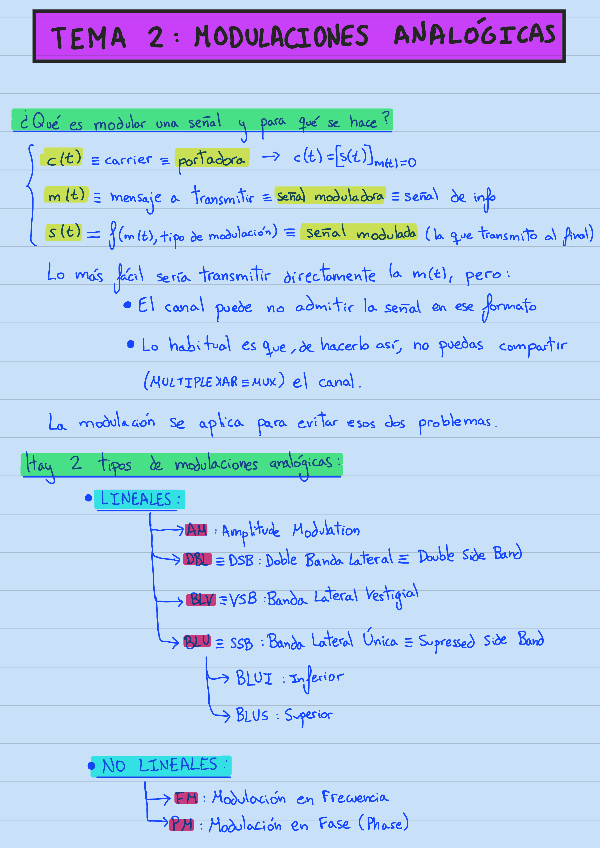 TEMA 2: MODULACIONES ANALÓGICAS
¿Qué es modular una señal y para qué se hace?
c(t) ≡ carrier ≡ portadora → c(t) = [s(t)]m(t)=0
m(t) ≡ mensaje a transmitir ≡ señal moduladora ≡ señal de info
s(t) = f(m(t), tipo de modulación) ≡ señal modulada (la que transmito al final)
Lo más fácil sería transmitir directamente la m(t), pero:
• El canal puede no admitir la señal en ese formato
• Lo habitual es que, de hacerlo así, no puedas compartir
(MULTIPLEXAR ≡ MUX) el canal.
La modulación se aplica para evitar esos dos problemas.
Hay 2 tipos de modulaciones analógicas:
• LINEALES:
→ AM: Amplitude Modulation
→ DBL ≡ DSB: Doble Banda Lateral ≡ Double Side Band
→ BLV ≡ VSB: Banda Lateral Vestigial
→ BLU ≡ SSB: Banda Lateral Única ≡ Supressed Side Band
→ BLUI: Inferior
→ BLUS: Superior
• NO LINEALES:
→ FM: Modulación en Frecuencia
→ PM: Modulación en Fase (Phase)